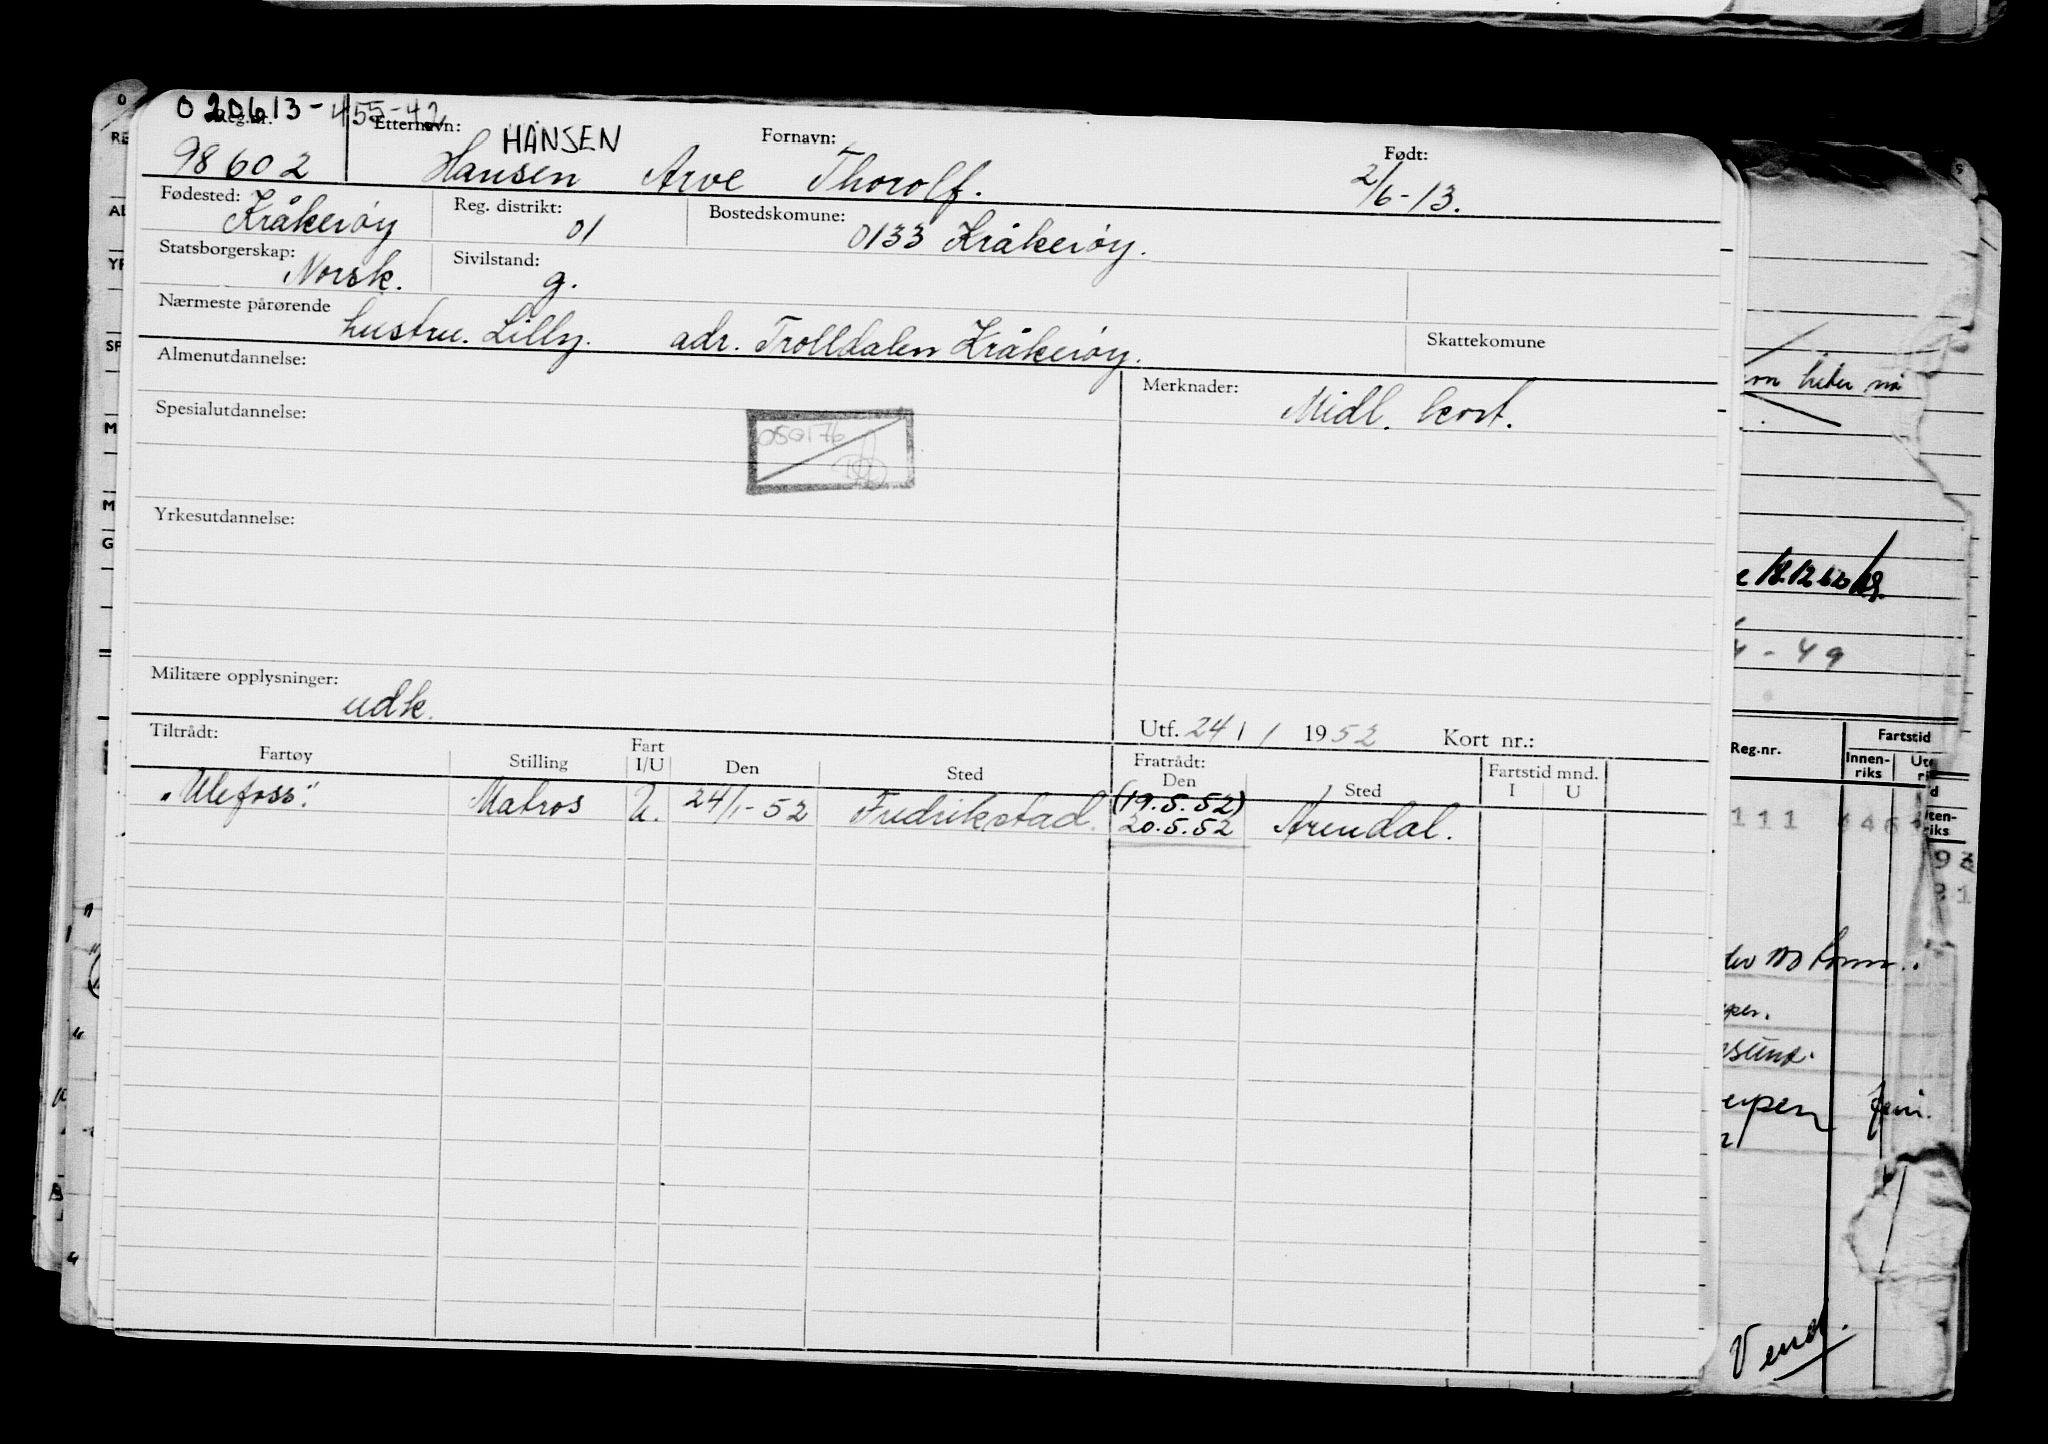 020613-455-42
Reg.nr. Etternavn: HANSEN Fornavn: Født:
98602 Hansen Arve Thorolf. 2/6-13.
Fødested: Kråkerøy Reg. distrikt: 01 Bostedskommune: 0133 Kråkerøy.
Statsborgerskap: Norsk. Sivilstand: g.
Nærmeste pårørende hustru. Lilly. adr. Trolldalen Kråkerøy. Skattekomune
Almenutdannelse: Merknader: Midl. kort.
Spesialutdannelse:
050176
Yrkesutdannelse:
Militære opplysninger: udk.
Utf. 24 / 1 1952 Kort nr.:
Tiltrådt: Fratrådt:
Fartøy Stilling Fart I/U Den Sted Den Sted Fartstid mnd. I U
"Ulefoss". Matros U. 24/1-52 Fredrikstad. (19.5.52) 20.5.52 Arendal.
heter nå
18.12
4-49
Reg.nr. Fartstid
Innen-
riks
111
Vend.